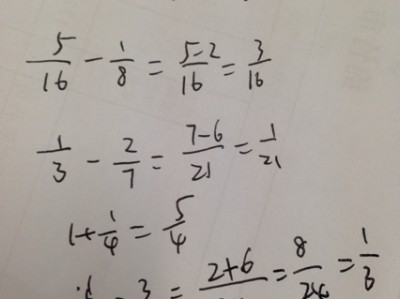 5/16 - 1/8 = 5-2/16 = 3/16
1/3 - 2/7 = 7-6/21 = 1/21
1+1/4 = 5/4
3 = 2+6 = 8/24 = 1/3